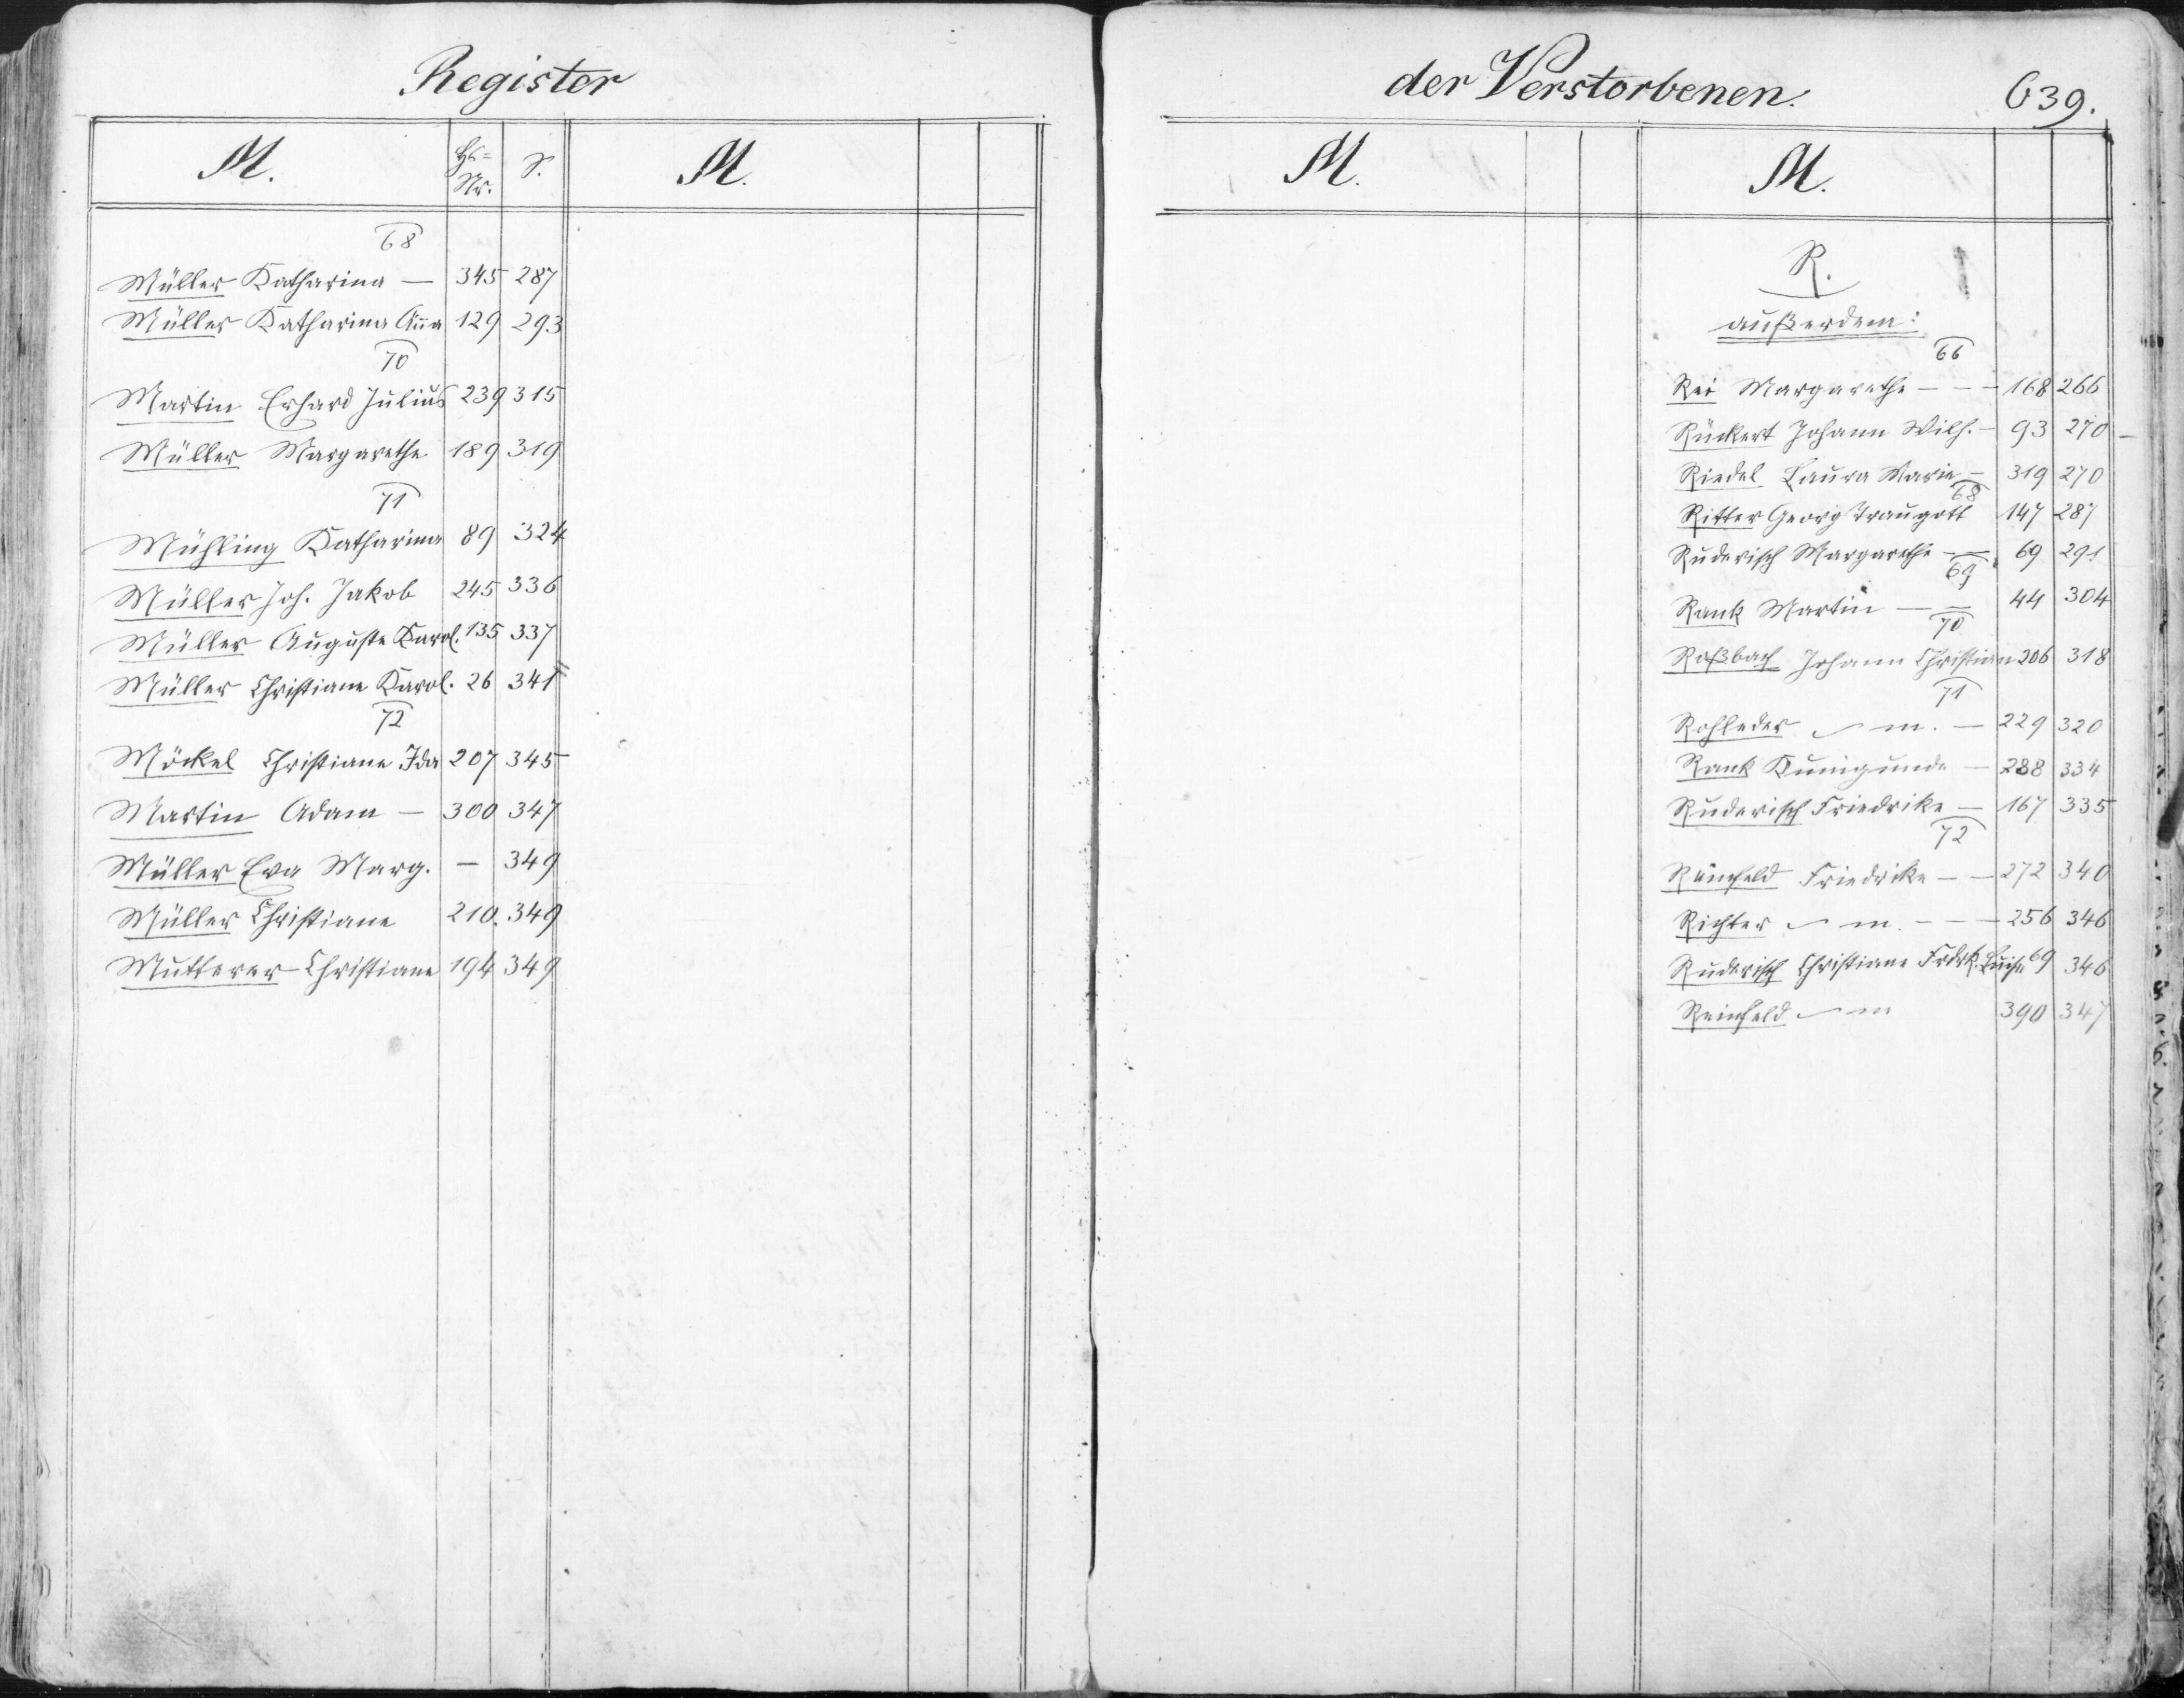 Register
M. Hs= Nr. S. M.
68
Müller Katharina — 345 287
Müller Katharina Aña 129 293
70
Martin Erhard Julius 239 315
Müller Margarethe 189 319
71
Mühling Katharina 89 324
Müller Joh. Jakob 245 336
Müller Auguste Karol. 135 337
Müller Christiane Karol. 26 341
72
Möckel Christiane Ida 207 345
Martin Adam — 300 347
Müller Eva Marg. — 349
Müller Christiane 210. 349
Mutterer Christiane 194 349
der Verstorbenen. 639.
M. M.
R.
außerdem:
66
Rei Margarethe — — 168 266
Rückert Johann Wilh. — 93 270 —
Riedel Laura Maria — 319 270
68
Ritter Georg Traugott 147 287
Ruderisch Margarethe — 69 291
69
Rank Martin — — 44 304
70
Roßbach Johann Christian 206 318
71
Rohleder m. — 229 320
Rank Kunigunde — 288 334
Ruderisch Friedrike — 167 335
72
Friedrike — — 272 340
Richter m. — — 256 346
Ruderisch Christiane Frdrk. Luise 69 346
Reinfeld m 390 347